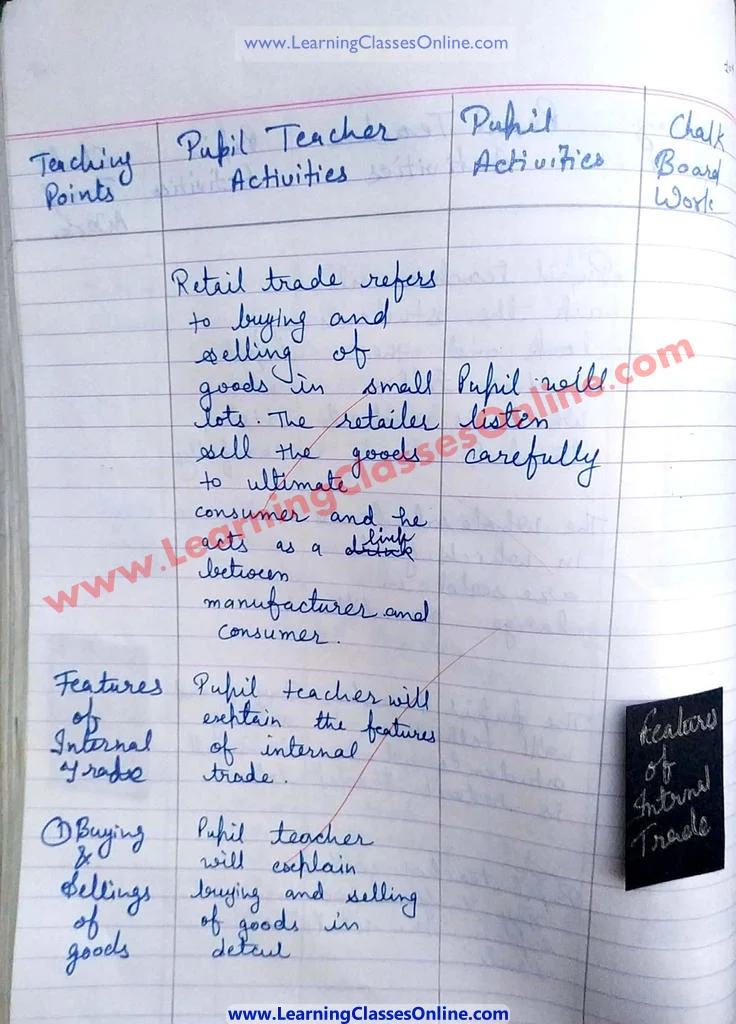 www.LearningClassesOnline.com
Teaching
Points
Pupil Teacher
Activities
Pupil
Activities
Chalk
Board
Work
Retail trade refers
to buying and
selling of
goods in small
lots. The retailer
sell the goods
to ultimate
consumer and he
acts as a link
between
manufacturer and
consumer.
Pupil will
listen
carefully
www.LearningClassesOnline.com
Features
of
Internal
Trade
Pupil teacher will
explain the features
of internal
trade.
Features
of
Internal
Trade
① Buying
&
Sellings
of
goods
Pupil teacher
will explain
buying and selling
of goods in
detail
www.LearningClassesOnline.com